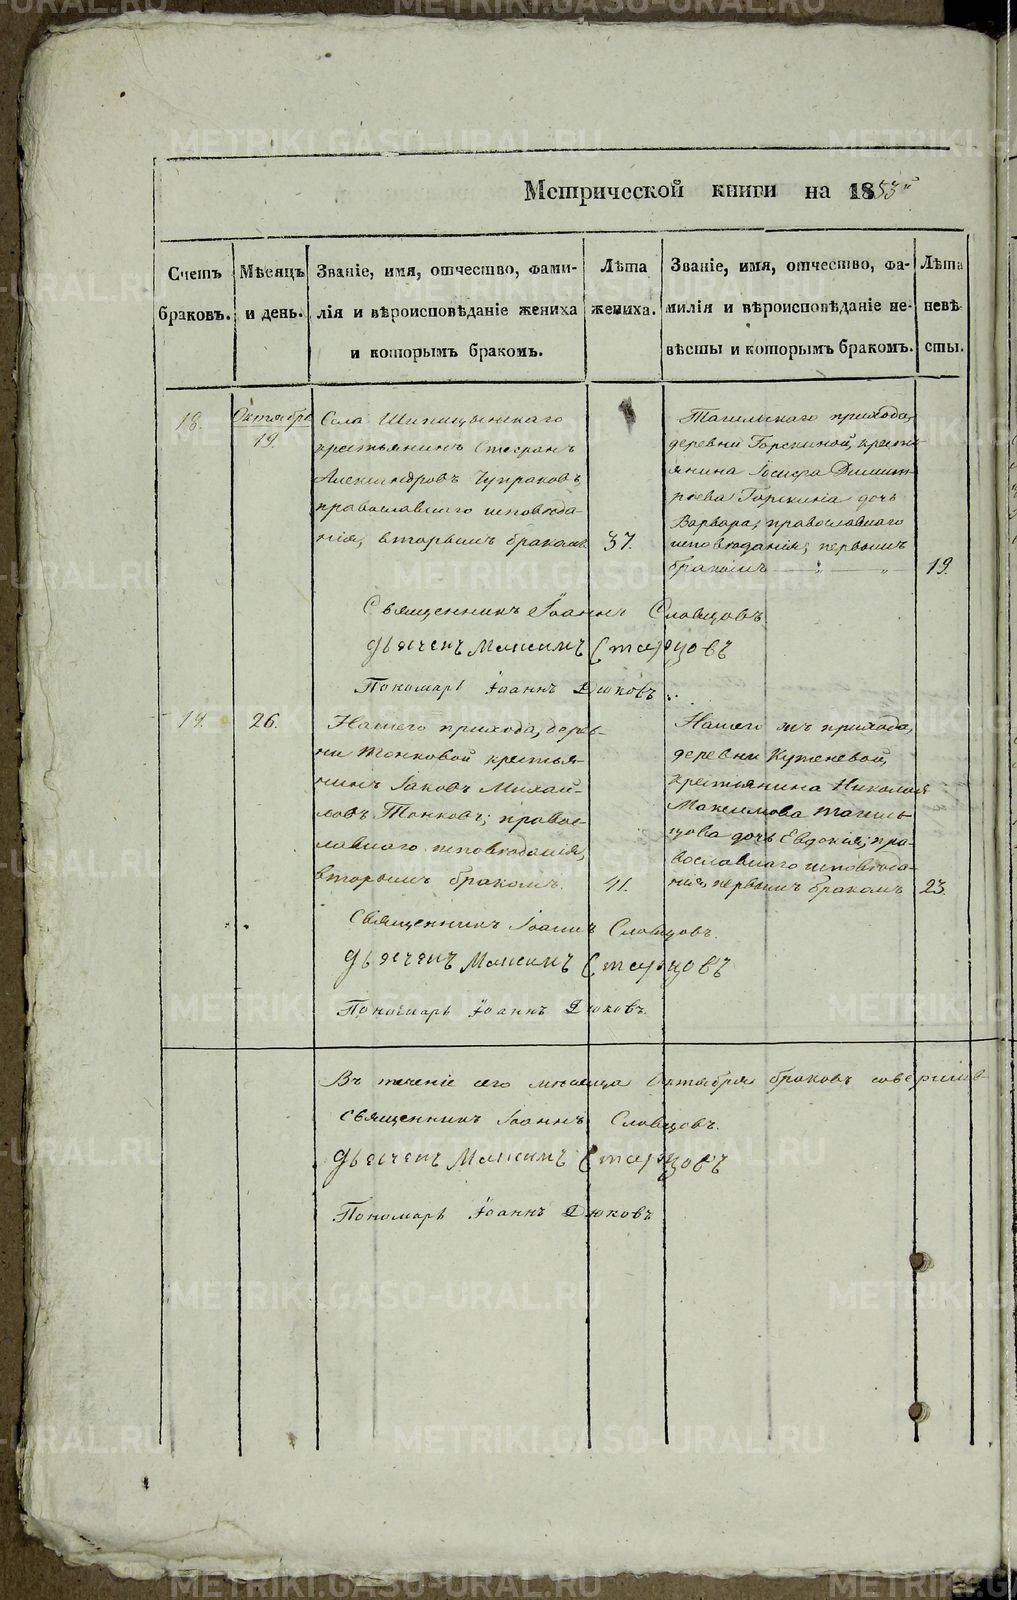 Метрической книги на 1853й
Счетъ браковъ.
Мѣсяцъ и день.
Званіе, имя, отчество, фами-
лія и вѣроисповѣданіе жениха
и которымъ бракомъ.
Лѣта
жениха.
Званіе, имя, отчество, фа-
милія и вѣроисповѣданіе не-
вѣсты и которымъ бракомъ.
Лѣта
невѣ-
сты.
18.
Октября
19.
Села Шипицынскаго
крестьянинъ Стефанъ
Александровъ Чупраковъ,
православнаго исповѣда-
нія, вторымъ бракомъ.
37.
Тагильскаго прихода,
деревни Горскиной, кресть-
янина Іосифа Димит-
ріева Горскина дочь
Варвара, православнаго
исповѣданія, первымъ
бракомъ
19.
Священникъ Іоаннъ Словцовъ
Дьячекъ Максимъ Старцовъ
Пономарь Іоаннъ Дюковъ
19.
26.
Нашего прихода, дерев-
ни Тонковой крестья-
нинъ Іаковъ Михай-
ловъ Тонковъ; правос-
лавнаго исповѣданія,
вторымъ бракомъ.
41.
Нашего жъ прихода,
деревни
крестьянина Николая
Максимова
дочь Евдокія; пра-
вославнаго исповѣда-
нія, первымъ бракомъ
23.
Священникъ Іоаннъ Словцовъ.
Дьячекъ Максимъ Старцовъ
Пономарь Іоаннъ Дюковъ.
Въ теченіе сего мѣсяца Октября браковъ соверши-
Священникъ Іоаннъ Словцовъ.
Дьячекъ Максимъ Старцовъ
Пономарь Іоаннъ Дюковъ
METRIKI.GASO-URAL.RU